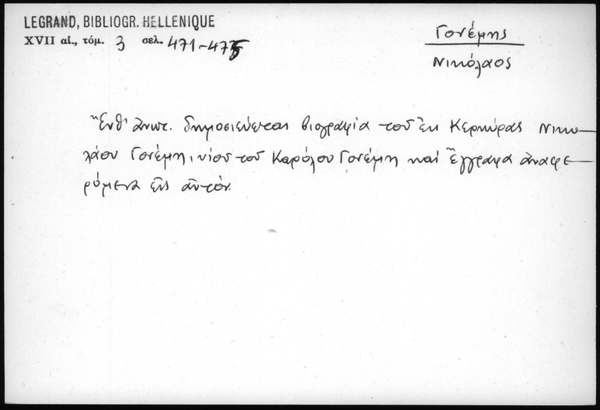 LEGRAND, BIBLIOGR. HELLENIQUE
XVII αἰ., τόμ. 3 σελ. 471-475
Γονέμης
Νικόλαος
Ἔνθ' ἀνωτ. δημοσιεύεται βιογραφία τοῦ ἐκ Κερκύρας Νικο-
λάου Γονέμη, υἱοῦ τοῦ Καρόλου Γονέμη καὶ ἔγγραφα ἀναφε-
ρόμενα εἰς αὐτόν.